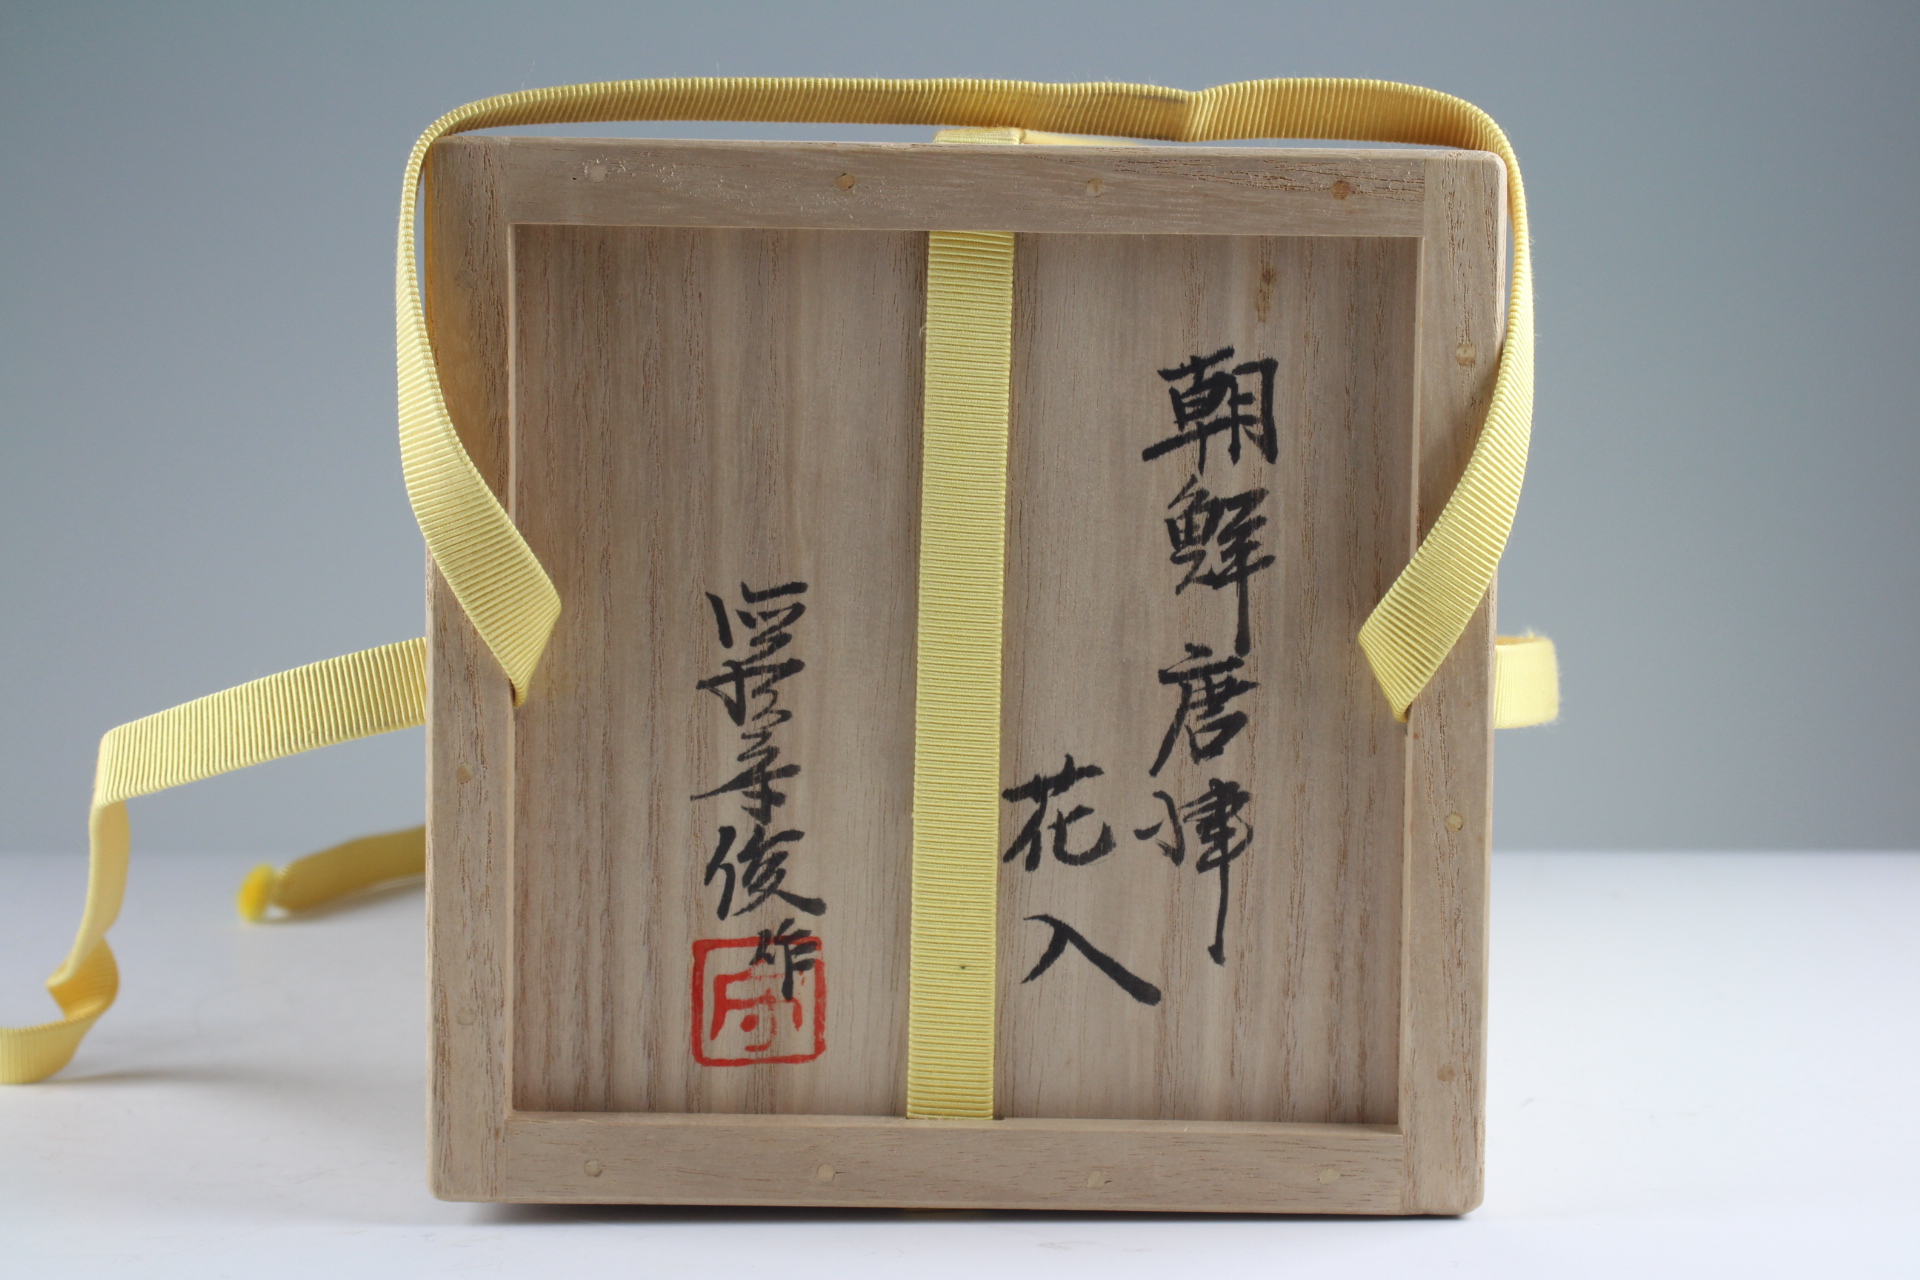 朝鮮唐津
花入
幸俊作